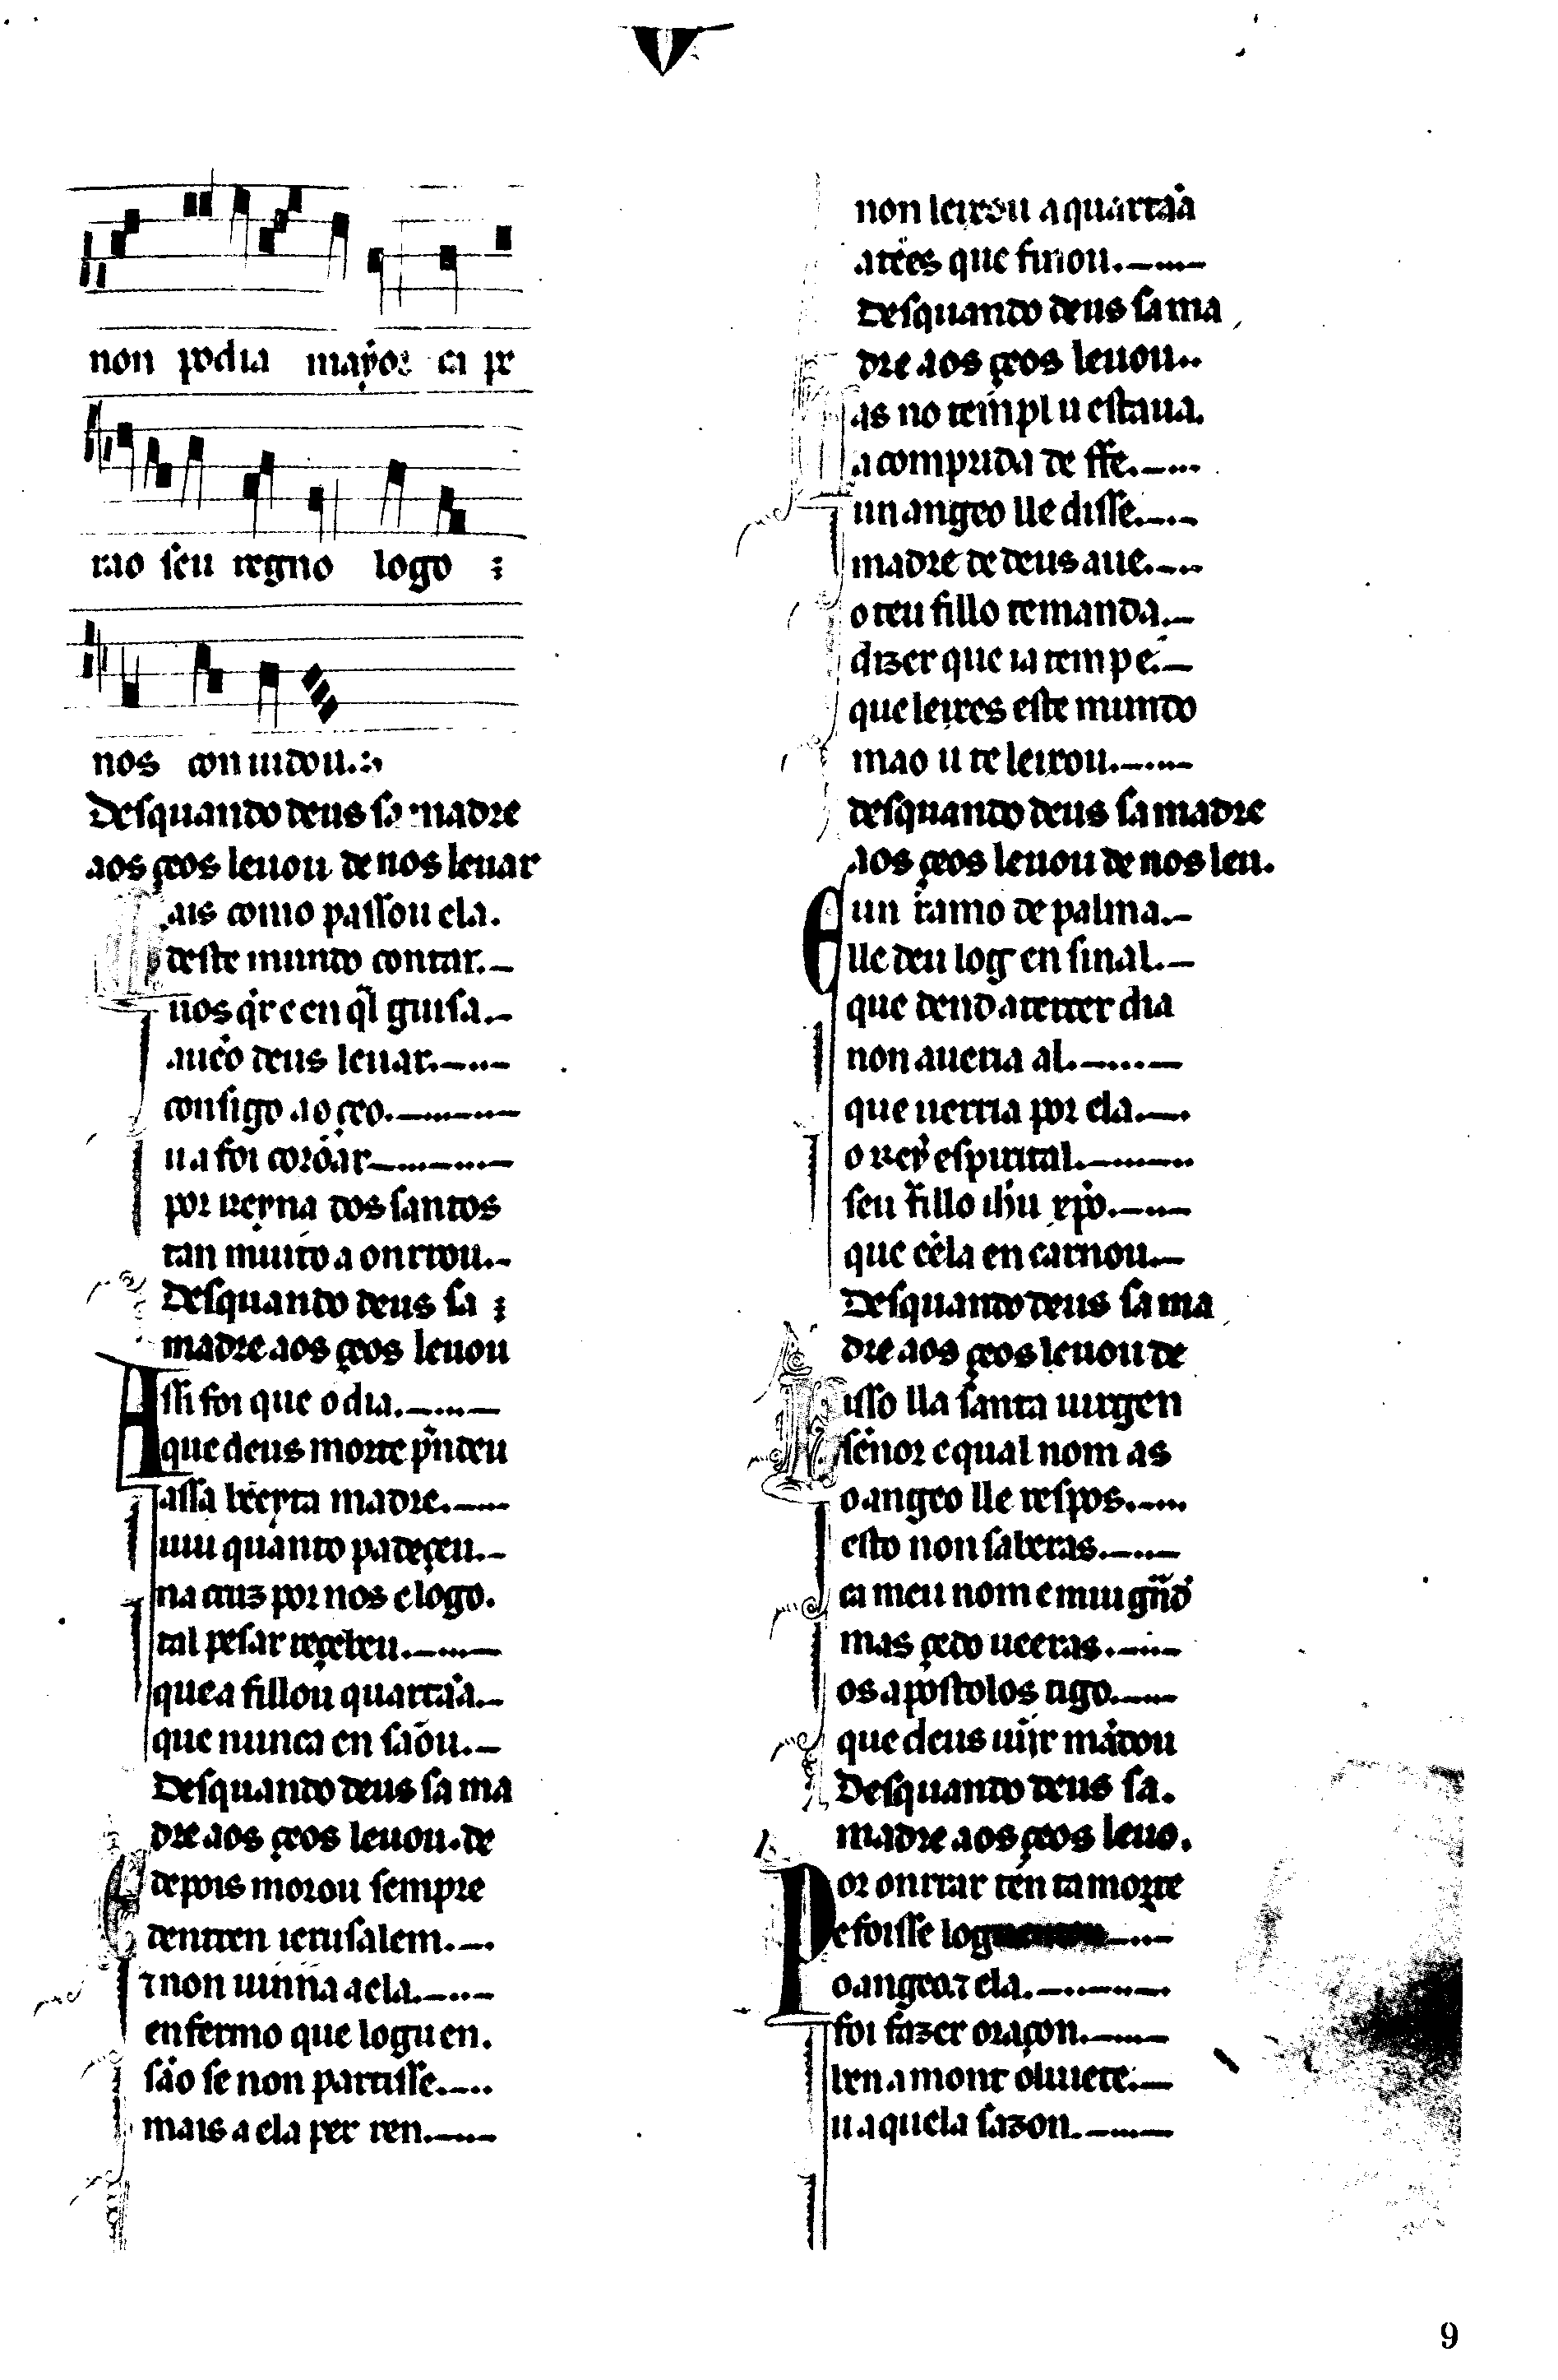 non podia mayor ca pe
rao seu regno logo
nos conuidou.
Desquando deus sa madre
aos çeos leuou de nos leuar
Mais como passou ela.
deste mundo contar.
uos q̇r e en q̃l guisa.
aueo deus leuar.
consigo ao çeo.
u a foi corõar
por reyna dos santos
tan muito a onrrou.
Desquando deus sa
madre aos çeos leuou
Assi foi que o dia.
que deus morte p̃ndeu
assa bẽeyta madre.
uiu quanto padeçeu.
na cruz por nos e logo.
tal pesar reçebeu.
que a fillou quartãa.
que nunca en sãou.
Desquando deus sa ma
dre aos çeos leuou. de
E depois morou sempre
dentren ierusalem.
⁊ non uiinna a ela.
enfermo que loguen.
são se non partisse.
mais a ela per ren.
non leixou a quartãa
atẽes que finou.
Desquando deus sa ma
dre aos çeos leuou.
Mas no templ u estaua.
a comprida de ffe.
un angeo lle disse.
madre de deus aue.
o teu fillo te manda.
dizer que ia temp e.
que leixes este mundo
mao u te leixou.
desquando deus sa madre
aos çeos leuou de nos leu.
E un ramo de palma.
lle deu log en sinal.
que dend a tercer dia
non aueria al.
que uerria por ela.
o rey espirital.
seu fillo ihũ xp̃o.
que ẽela en carnou.
Desquando deus sa ma
dre aos çeos leuou de
Disso lla santa uirgen
sẽnor e qual nom as
o angeo lle respos.
esto non saberas.
ca meu nom e mui gñd
mas çedo ueeras.
os apostolos tigo.
que deus uijr mãdou
Desquando deus sa.
madre aos çeos leuo.
Por onrrar ten ta morte
e foisse log
o angeo. ⁊ ela.
foi fazer oraçon.
ben a mont oliuete.
u aquela sazon.
9